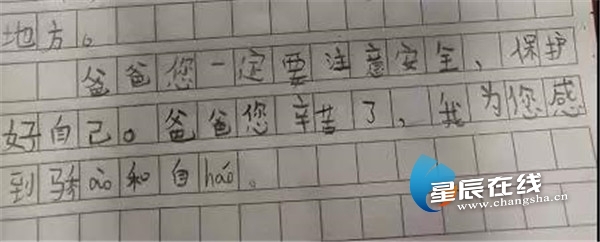 地方。
爸爸您一定要注意安全，保护
好自己。爸爸您辛苦了，我为您感
到骄ào和自háo。
星辰在线
www.changsha.cn